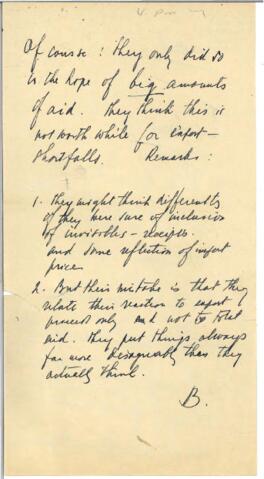 Of course! They only did so
in the hope of big amounts
of aid. They think this is
not worth while for export –
shortfalls. Remarks:
1. they might think differently
if they were sure of inclusion
of invisibles – receipts
and some reflection of import
prices
2. But their mistake is that they
relate their reaction to export
proceeds only and not to total
aid. They put things always
far more disagreeably than they
actually think.
B.